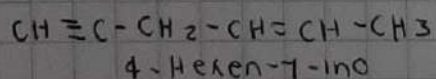 CH ≡ C - CH2 - CH = CH - CH3
4-Hexen-1-ino